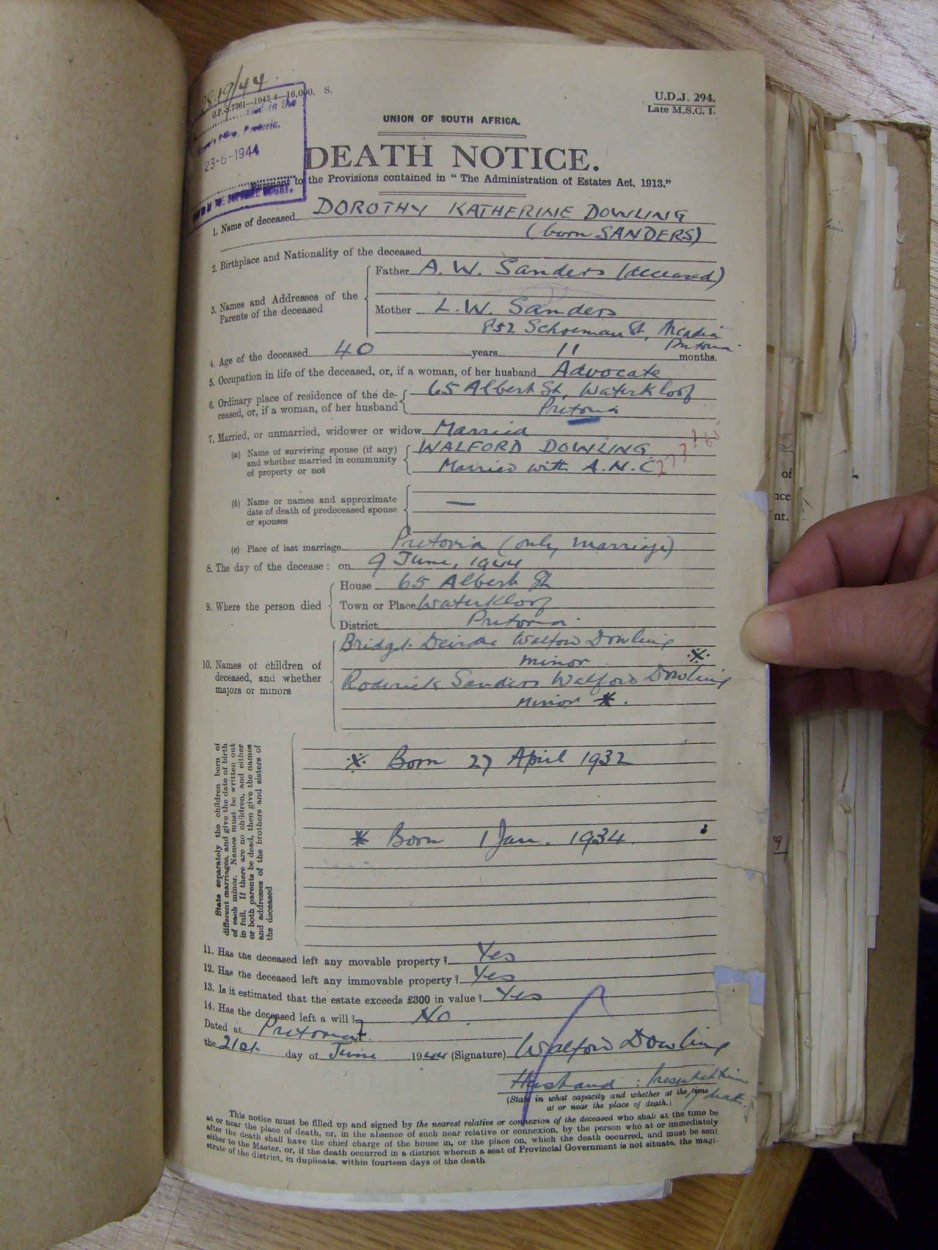 2819/44
G.P.-S.7361—1943-4—16,000. S.
U.D.J. 294.
Late M.S.C. 1.
in the
Office, Pretoria.
23-6-1944
UNION OF SOUTH AFRICA.
DEATH NOTICE.
Pursuant to the Provisions contained in “ The Administration of Estates Act, 1913.”
1. Name of deceased DOROTHY KATHERINE DOWLING
(born SANDERS)
2. Birthplace and Nationality of the deceased
3. Names and Addresses of the Parents of the deceased
Father A. W. Sanders (deceased)
Mother L. W. Sanders
852 Schoeman St, Arcadia
Pretoria
4. Age of the deceased 40 years 11 months.
5. Occupation in life of the deceased, or, if a woman, of her husband Advocate
6. Ordinary place of residence of the de-
ceased, or, if a woman, of her husband
65 Albert St, Waterkloof
Pretoria
7. Married, or unmarried, widower or widow Married
(a) Name of surviving spouse (if any)
and whether married in community
of property or not
WALFORD DOWLING
Married with A.N.C.
(b) Name or names and approximate
date of death of predeceased spouse
or spouses
—
(c) Place of last marriage Pretoria (only marriage)
8. The day of the decease : on 9 June, 1944
9. Where the person died
House 65 Albert St
Town or Place Waterkloof
District Pretoria.
10. Names of children of
deceased, and whether
majors or minors
Bridget Deirdre Walford Dowling
minor ※
Roderick Sanders Walford Dowling
minor *.
State separately the children born of
different marriages, and give the date of birth
of each minor. Names must be written out
in full. If there are no children, and either
or both parents be dead, then give the names
and addresses of the brothers and sisters of
the deceased
※ Born 27 April 1932
* Born 1 Jan. 1934.
11. Has the deceased left any movable property ? Yes
12. Has the deceased left any immovable property ? Yes
13. Is it estimated that the estate exceeds £300 in value ? Yes
14. Has the deceased left a will ? No.
Dated at Pretoria
the 21st day of June 1944 (Signature) Walford Dowling
Husband : present at time
of death.
(State in what capacity and whether at the time
at or near the place of death.)
This notice must be filled up and signed by the nearest relative or connexion of the deceased who shall at the time be
at or near the place of death, or, in the absence of such near relative or connexion, by the person who at or immediately
after the death shall have the chief charge of the house in, or the place on, which the death occurred, and must be sent
either to the Master, or, if the death occurred in a district wherein a seat of Provincial Government is not situate, the magi-
strate of the district, in duplicate, within fourteen days of the death.
of
nce
nt.